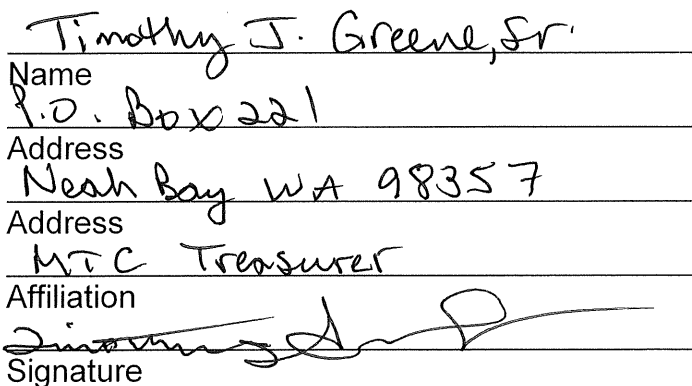 Timothy J. Greene, Sr.
Name
P.O. Box 221
Address
Neah Bay WA 98357
Address
MTC Treasurer
Affiliation
Signature